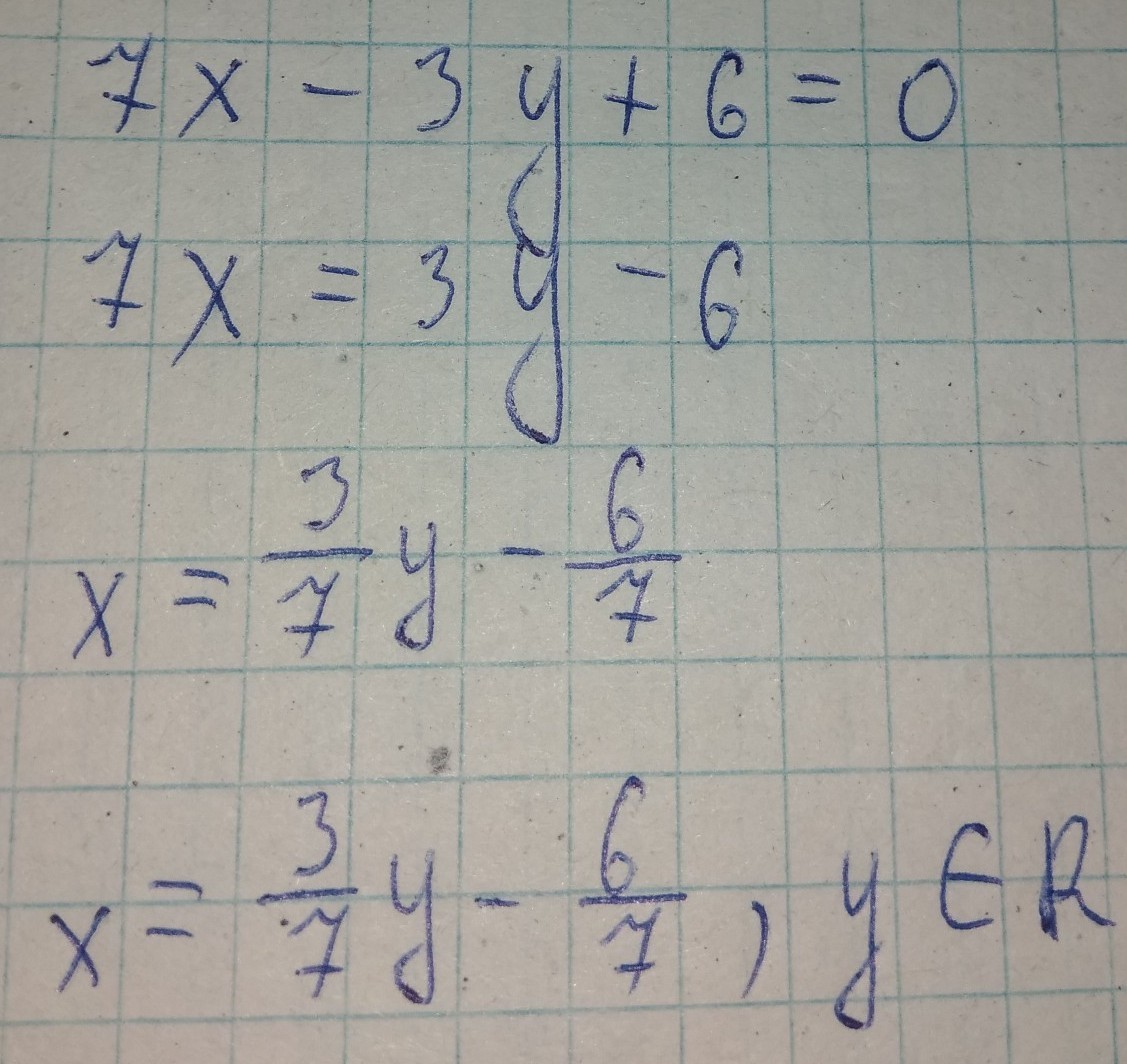 7x - 3y + 6 = 0
7x = 3y - 6
x = 3/7 y - 6/7
x = 3/7 y - 6/7, y ∈ R